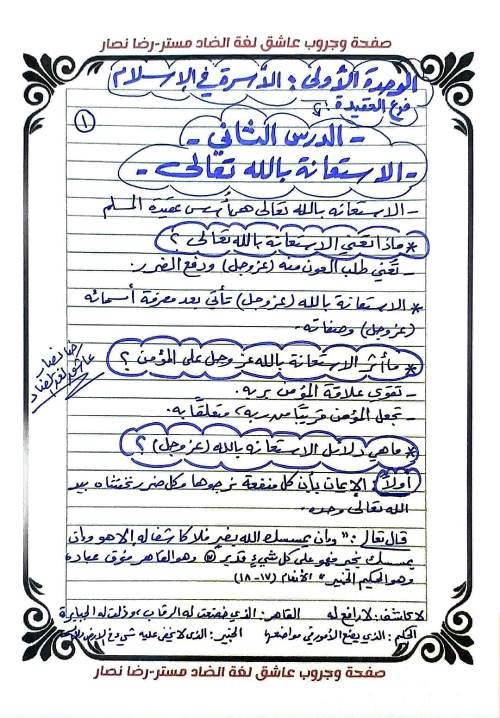 صفحة وجروب عاشق لغة الضاد مستر-رضا نصار
الوحدة الأولى: الأسرة في الإسلام
فرع العقيدة:
١
- الدرس الثاني -
- الاستعانة بالله تعالى -
- الاستعانة بالله تعالى هي أسس عقيدة المسلم
* ماذا تعني الاستعانة بالله تعالى ؟
- تعني طلب العون منه (عزوجل) ودفع الضرر.
* الاستعانة بالله (عزوجل) تأتي بعد معرفة أسمائه
(عزوجل) وصفاته.
* ما أثر الاستعانة بالله عزوجل على المؤمن ؟
- تقوي علاقة المؤمن بربه.
- تجعل المؤمن قريبًا من ربه، متعلقًا به.
رضا نصار
عاشق لغة الضاد
* ما هي دلائل الاستعانة بالله (عزوجل) ؟
أولاً: الإيمان بأن كل منفعة نرجوها وكل ضرر نخشاه بيد
الله تعالى وحده.
قال تعالى: " وإن يمسسك الله بضر فلا كاشف له إلا هو وإن
يمسسك بخير فهو على كل شيء قدير (١٧) وهو القاهر فوق عباده
وهو الحكيم الخبير " الأنعام (١٧-١٨)
لا كاشف: لا رافع له القاهر: الذي خضعت له الرقاب، وذلت له الجبابرة
الحكيم: الذي يضع الأمور في مواضعها الخبير: الذي لا يخفى عليه شيء في الأرض
صفحة وجروب عاشق لغة الضاد مستر-رضا نصار